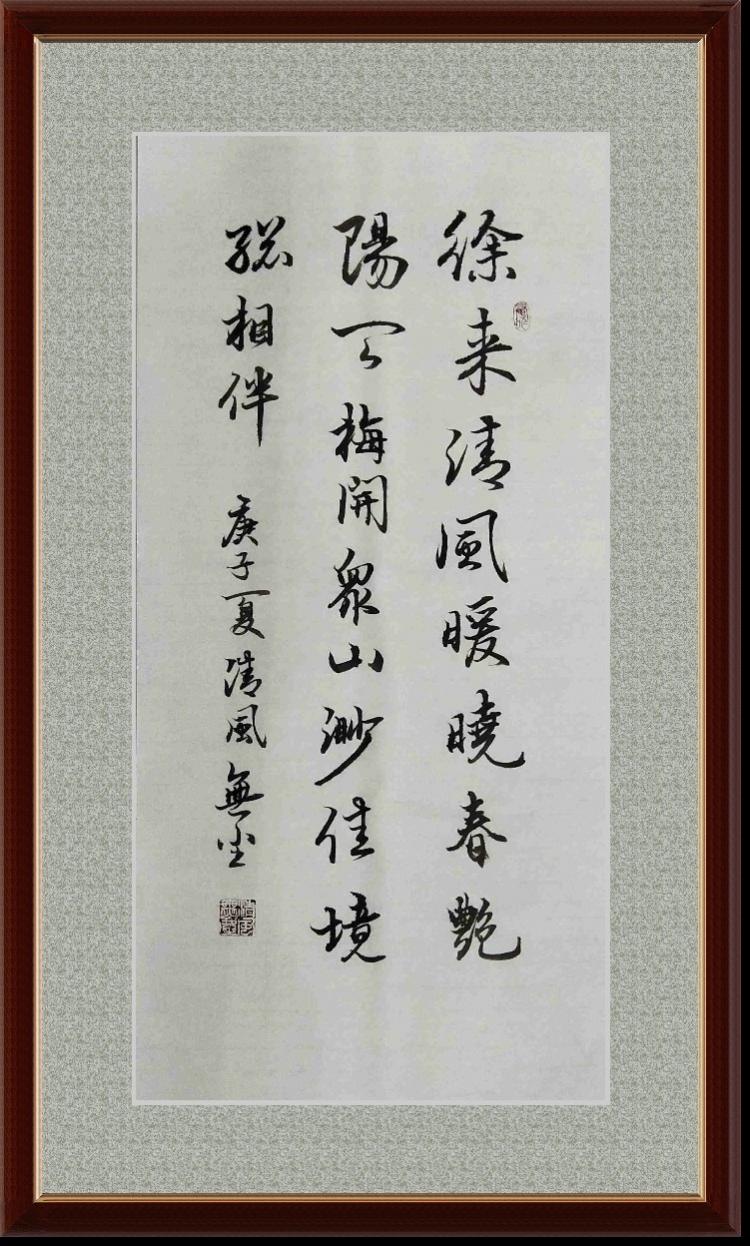 徐来清風暖曉春艷
陽天梅開眾山渺佳境
総相伴
庚子夏清風無尘